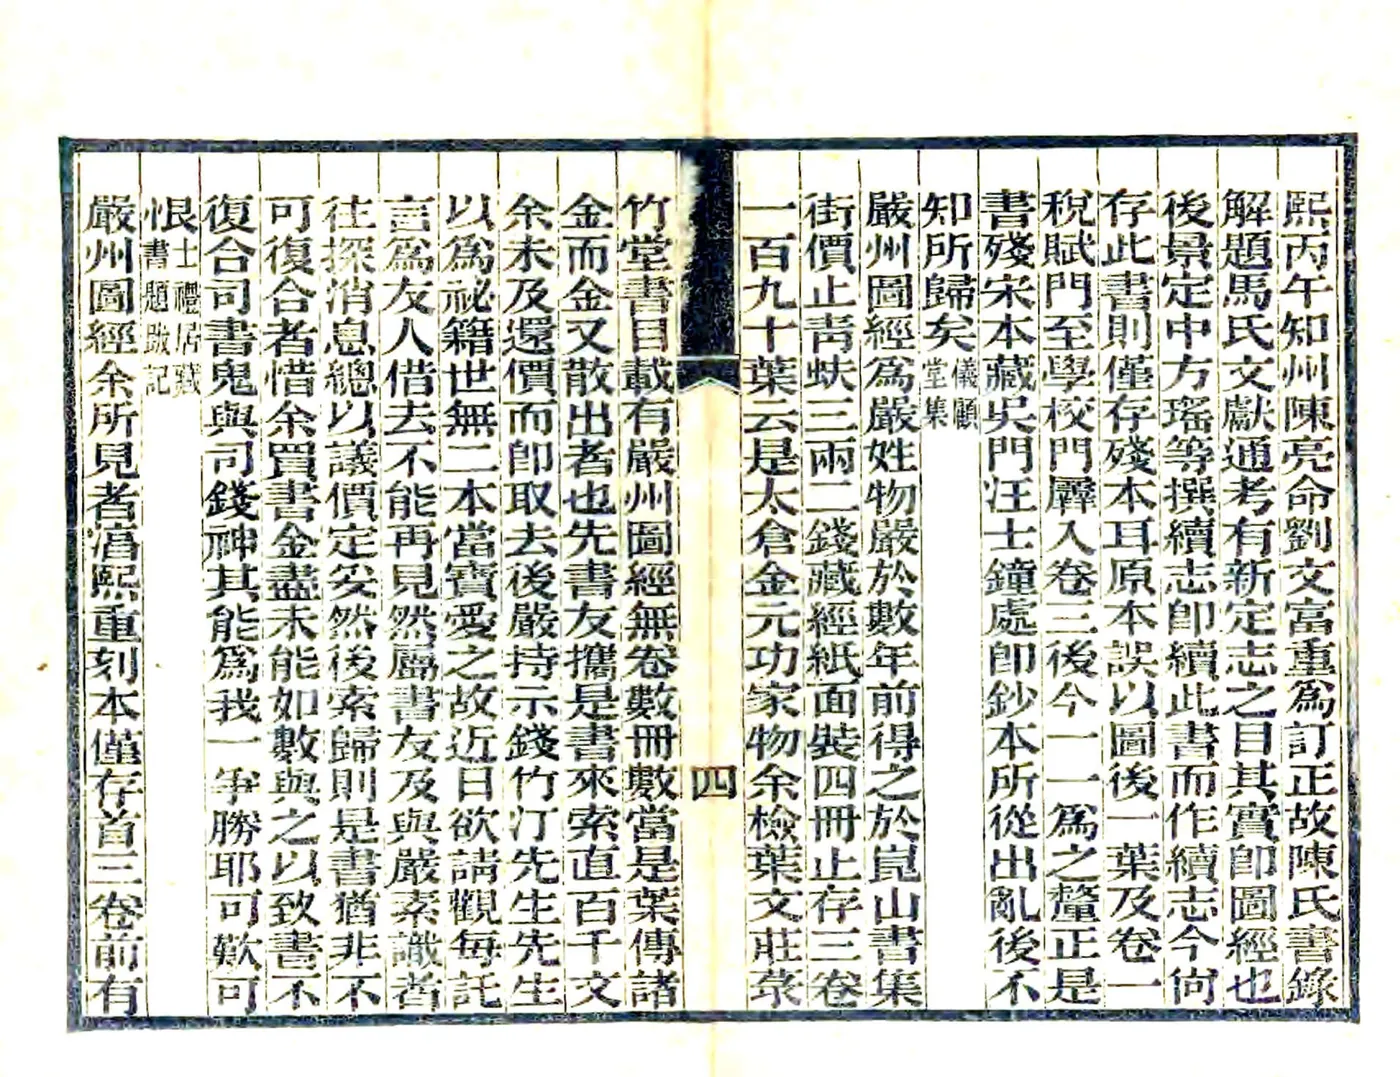 熙丙午知州陳亮命劉文富重爲訂正故陳氏書錄
解題馬氏文獻通考有新定志之目其實卽圖經也
後景定中方瑤等撰續志卽續此書而作續志今尙
存此書則僅存殘本耳原本誤以圖後一葉及卷一
稅賦門至學校門羼入卷三後今一一爲之釐正是
書殘宋本藏吳門汪士鐘處卽鈔本所從出亂後不
知所歸矣儀顧堂集
嚴州圖經爲嚴姓物嚴於數年前得之於崑山書集
街價止靑蚨三兩二錢藏經紙面裝四冊止存三卷
一百九十葉云是太倉金元功家物余檢葉文莊菉
四
竹堂書目載有嚴州圖經無卷數冊數當是葉傳諸
金而金又散出者也先書友攜是書來索直百千文
余未及還價而卽取去後嚴持示錢竹汀先生先生
以爲祕籍世無二本當寶愛之故近日欲請觀每託
言爲友人借去不能再見然屬書友及與嚴素識者
往探消息總以議價定妥然後索歸則是書猶非不
可復合者惜余買書金盡未能如數與之以致書不
復合司書鬼與司錢神其能爲我一爭勝耶可歎可
恨士禮居藏書題跋記
嚴州圖經余所見者淳熙重刻本僅存首三卷前有